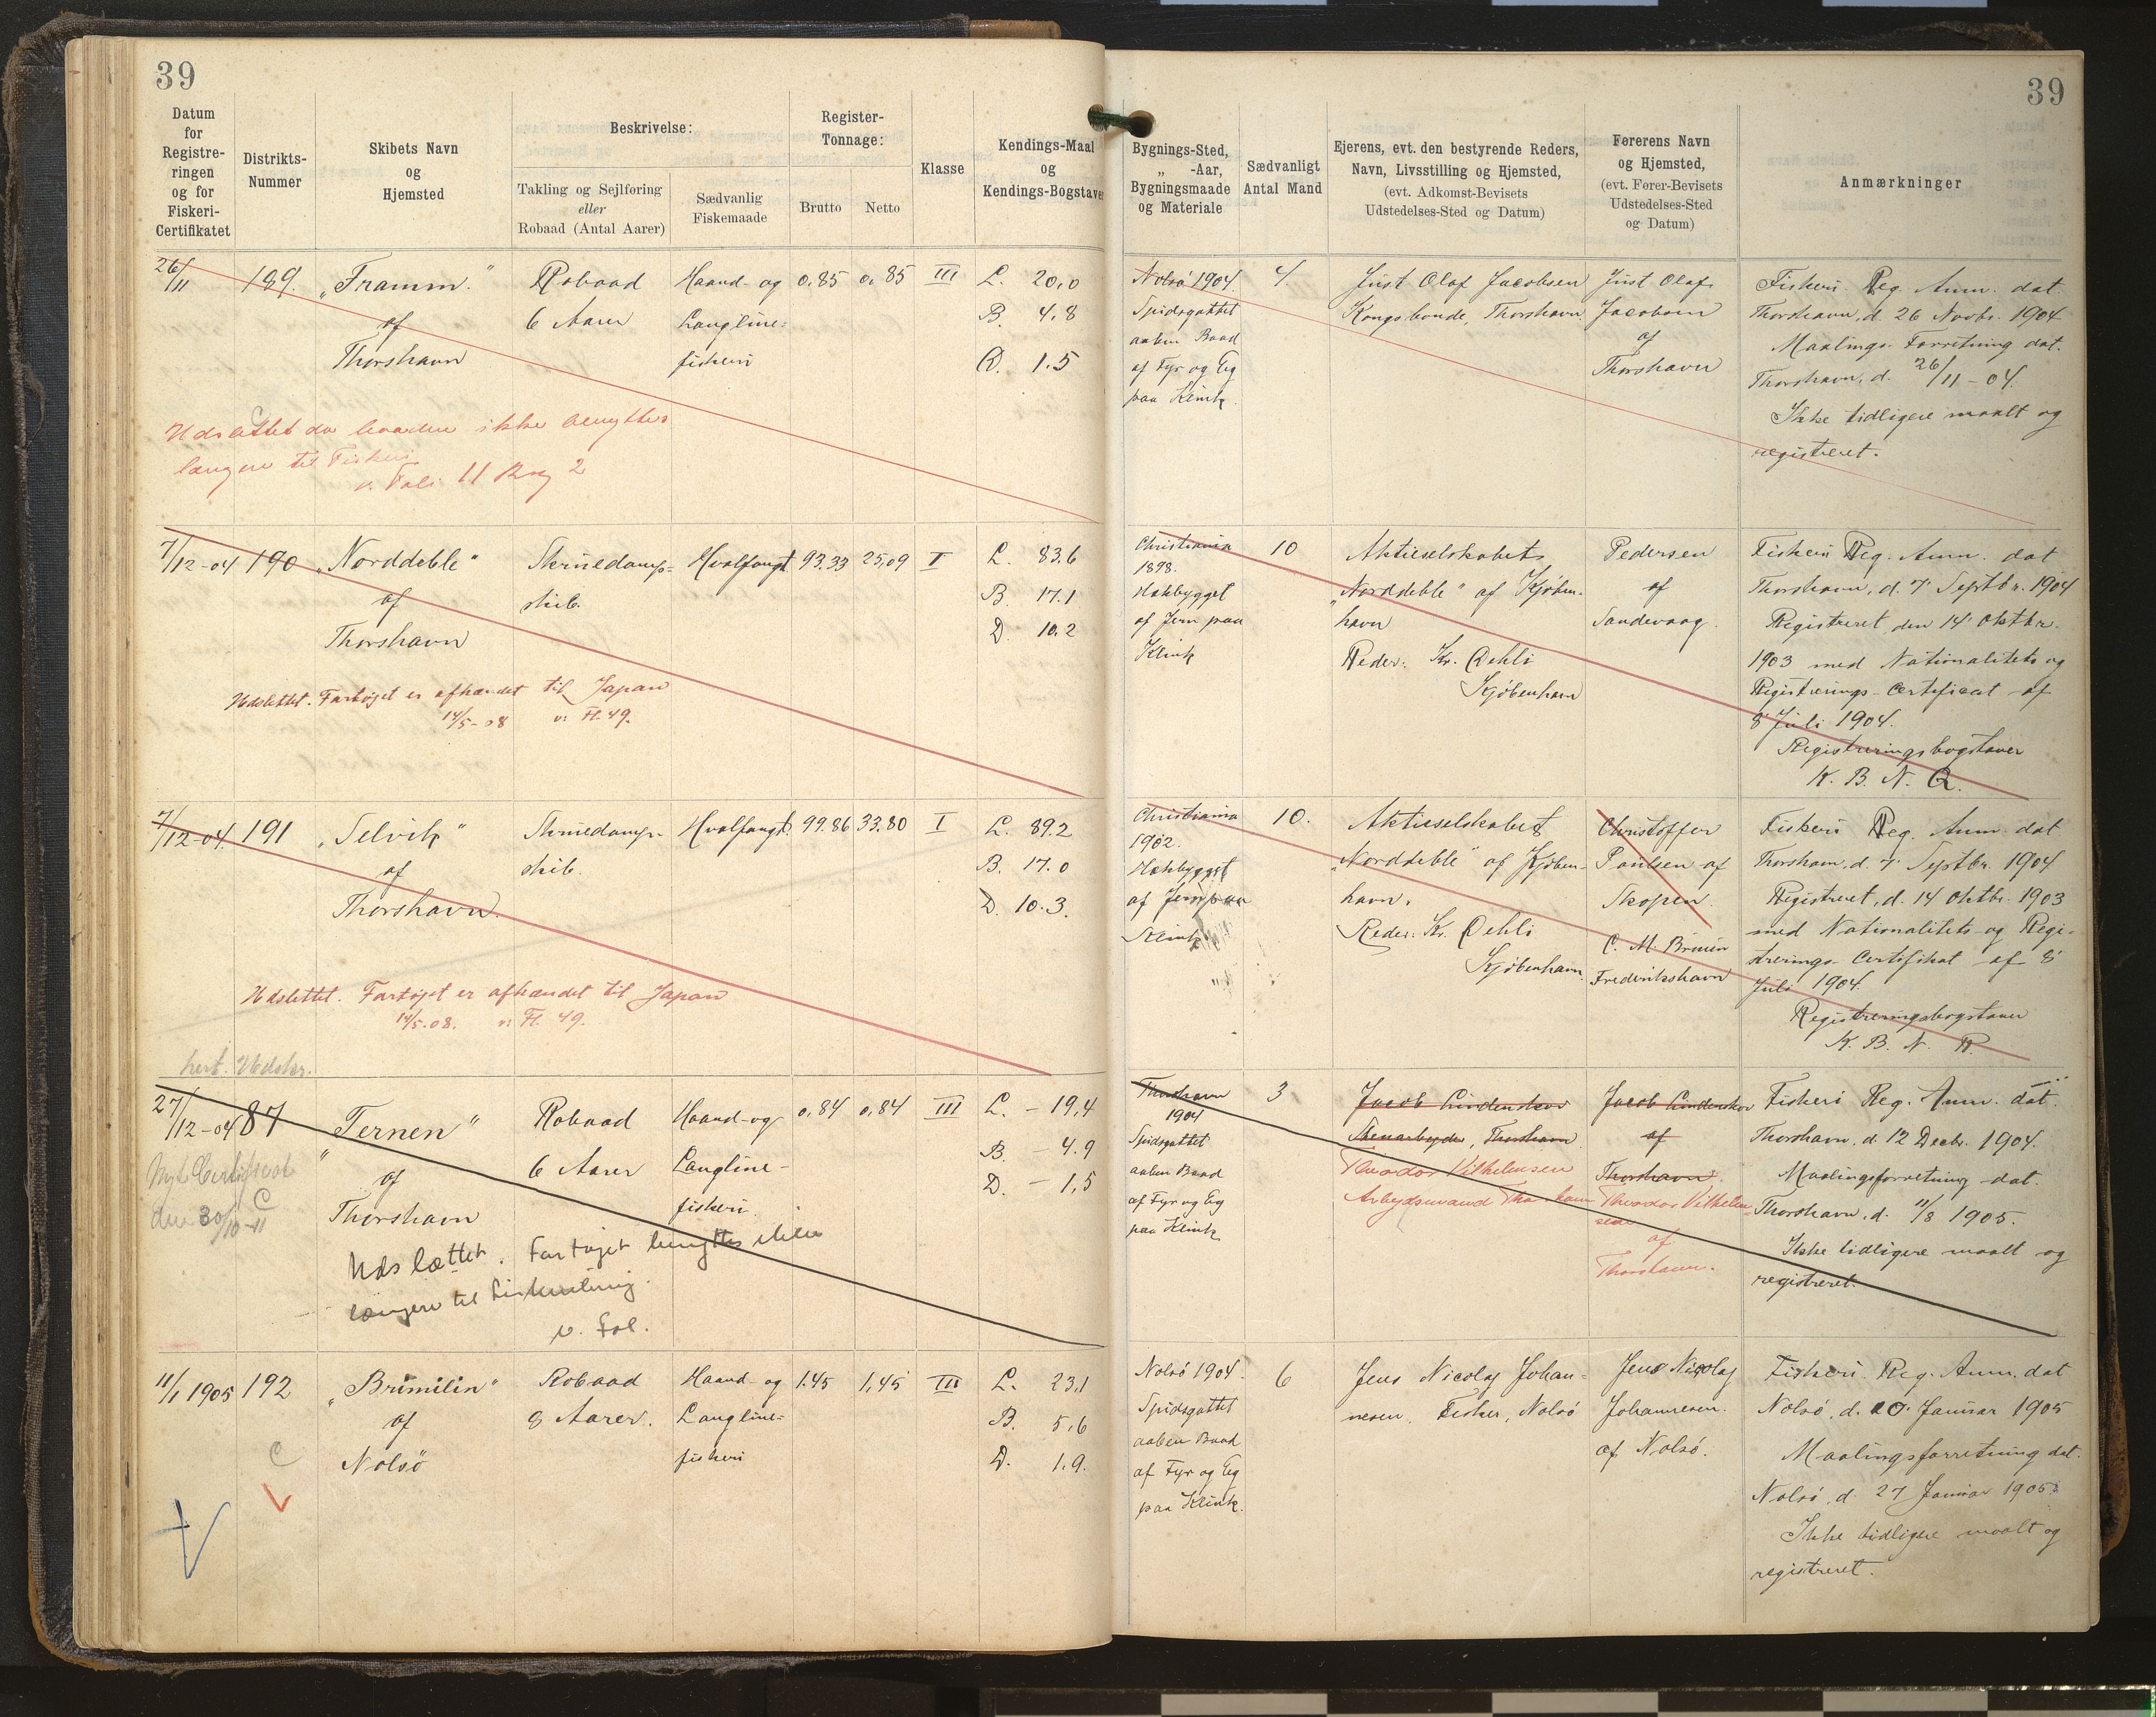 39
39
Datum
for
Registre-
ringen
og for
Fiskeri-
Certifikatet
Distrikts-
Nummer
Skibets Navn
og
Hjemsted
Beskrivelse:
Takling og Sejlføring
eller
Robaad (Antal Aarer)
Sædvanlig
Fiskemaade
Register-
Tonnage:
Brutto
Netto
Klasse
Kendings-Maal
og
Kendings-Bogstaver
Bygnings-Sted,
„ -Aar,
Bygningsmaade
og Materiale
Sædvanligt
Antal Mand
Ejerens, evt. den bestyrende Reders,
Navn, Livsstilling og Hjemsted,
(evt. Adkomst-Bevisets
Udstedelses-Sted og Datum)
Førerens Navn
og Hjemsted,
(evt. Fører-Bevisets
Udstedelses-Sted
og Datum)
Anmærkninger
26/11
189.
„Framm."
af
Thorshavn
Robaad
6 Aarer
Haand- og
Langline-
fiskeri
0,85
0,85
III
L. 20,0
B. 4,8
D. 1.5
Nolsö 1904.
Spidsgattet
aaben Baad
af Fyr og Eg
paa Klink.
4.
Just Olaf Jacobsen
Kongsbonde, Thorshavn.
Just Olaf
Jacobsen
af
Thorshavn
Fiskeri Reg. Anm. dat.
Thorshavn, d. 26 Novbr. 1904
Maalings-Forretning dat.
Thorshavn, d. 26/11 - 04.
Ikke tidligere maalt og
registreret.
Udslettet da baaden ikke benyttes
længere til Fiskeri
v. Fol: 11 Bog 2
7/12-04
190
„Norddeble"
af
Thorshavn
Skruedamp-
skib.
Hvalfangst
93.33
25,09
I
L. 83.6
B. 17.1
D. 10.2
Christiania
1898.
Hækbygget
af Jern paa
Klink
10
Aktieselskabets
„Norddeble" af Kjöben-
havn
Reder: Kr. Dehli
Kjöbenhavn
Pedersen
af
Sandevaag.
Fiskeri Reg. Anm. dat
Thorshavn, d. 7' Septbr. 1904
Registreret den 14' Oktbr.
1903 med Nationalitets og
Registrerings-Certificat af
8' Juli 1904.
Registreringsbogstaver
K. B. N. Q.
Udslettet. Fartøjet er afhændet til Japan
14/5-08 v: Fl. 49.
7/12-04.
191
„Selvik"
af
Thorshavn.
Skruedamp-
skib.
Hvalfangst.
99.86
33.80
I
L. 89.2
B. 17.0
D. 10.3.
Christiania
1902.
Hækbygget
af Jern paa
Klink
10.
Aktieselskabet
„Norddeble" af Kjöben-
havn.
Reder: Kr. Dehli
Kjöbenhavn.
Christoffer
Paulsen af
Skopen.
C. M. Bruun
Frederikshavn
Fiskeri Reg. Anm. dat
Thorshavn, d. 7' Septbr. 1904
Registreret, d. 14 Oktbr. 1903
med Nationalitets- og Regi-
strerings-Certifikat af 8'
Juli 1904.
Registreringsbogstaver
K. B. N. R.
Udslettet. Fartøjet er afhændet til Japan
14/5.08. v: Fl. 49.
27/12-04
87
„Ternen"
af
Thorshavn
Robaad
6 Aarer
Haand-og
Langline-
fiskeri.
0,84
0,84
III
L. - 19,4
B. - 4.9
D. - 1,5
Thorshavn
1904
Spidsgattet
aaben Baad
af Fyr og Eg
paa Klink
3
Jacob Lindenskov
Thorshavn
Theodor Vilhelmsen
Arbejdsmand Thorshavn
Jacob Lindenskov
af
Thorshavn.
Theodor Vilhelm-
sen
af
Thorshavn.
Fiskeri Reg. Anm. dat.
Thorshavn, d. 12 Decbr. 1904.
Maalingsforretning dat.
Thorshavn, d. 11/8 1905.
Ikke tidligere maalt og
registreret.
Nyt Certificat
den 30/10-11
C
Udslættet. Fartøjet benyttes ikke
længere til
v. Fol.
11/1 1905
192
„Brimilin"
af
Nolsö
Robaad
8 Aarer.
Haand- og
Langline-
fiskeri
1.45
1,45
III
L. 23,1
B. 5,6
D. 1.9.
Nolsö 1904.
Spidsgattet
aaben Baad
af Fyr og Eg
paa Klink.
6
Jens Nicolaj Johan-
nesen, Fisker, Nolsö
Jens Nicolaj
Johannesen.
af Nolsö.
Fiskeri Reg. Anm. dat
Nolsö, d. 10' Januar 1905
Maalingsforretning dat.
Nolsö, d. 27 Januar 1905.
Ikke tidligere maalt og
registreret.
C